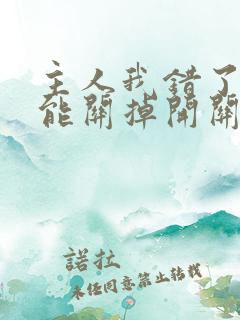 主人我错了
能關掉開關
諾拉
未经同意禁止转载